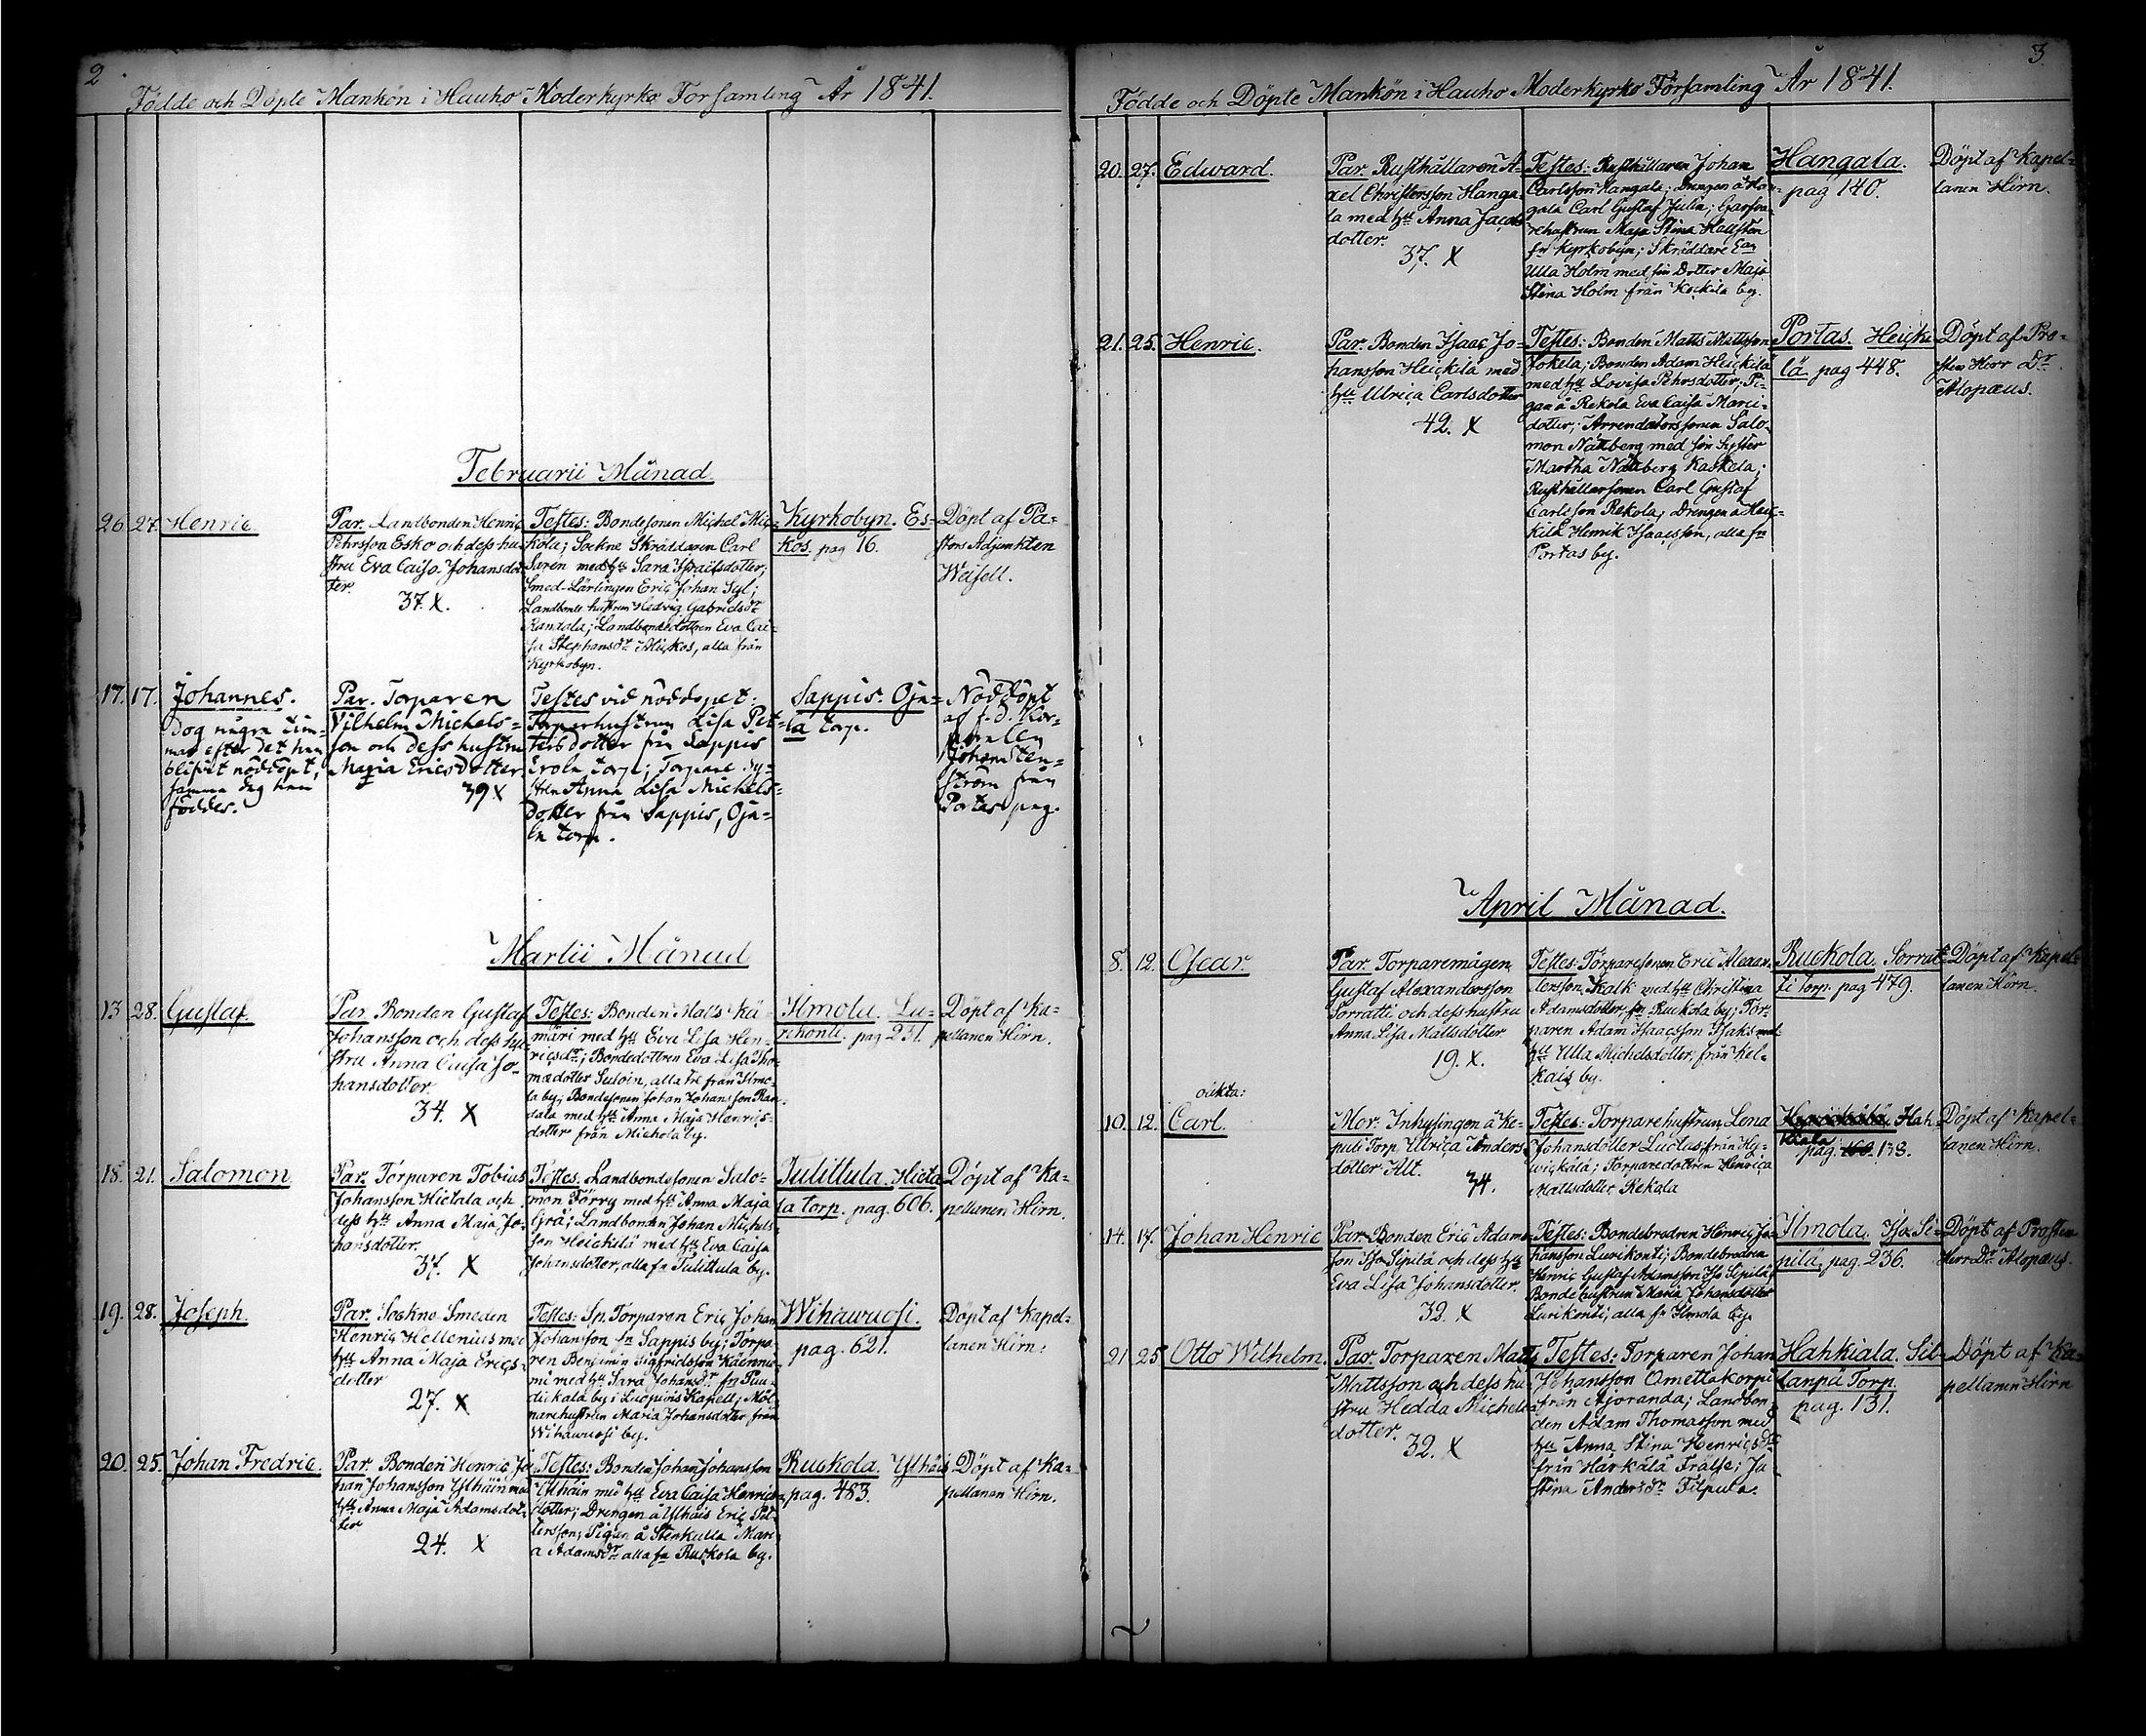 2.
Födde och Döpte Mankön i Hauho Moderkyrko Församling År 1841.
Februarii Månad
26. 27. Henric.
Par. Landbonden Henric
Pehrsson Esko och dess hu-
stru Eva Caisa Johansdot-
ter.
37. X.
Testes: Bondesonen Michel Mic-
kola; Sockne Skräddaren Carl
Saren med hu Sara Israelsdotter;
Smed-Lärlingen Eric Johan Sgl;
Landbonde hustrun Hedvig Gabrielsdr
Landbondedottren Eva Cai-
sa Stephansdr Mickos, alla från
Kyrkobyn.
Kyrkobyn. Es-
kos. pag 16.
Döpt af Pa-
stors Adjunkten
Weisell.
17. 17. Johannes.
Dog några tim-
mar efter det han
blifvit nöddöpt,
samma dag han
föddes.
Par. Torparen
Vilhelm Michels-
son och dess hustru
Maria Ericsdotter
39 X
Testes vid nöddopet:
Torparhustrun Lisa Pet-
tersdotter från Sappis
Erola torp; Torpare Sy-
stren Anna Lisa Michels-
dotter från Sappis, Oja-
la torp.
Sappis. Oja-
la torp.
Nöddöpt
af f.d. Kor-
pralen
Johan Sten-
ström från
Portas pag.
Martii Månad
13 28. Gustaf.
Par. Bonden Gustaf
Johansson och dess hu-
stru Anna Caisa Jo-
hansdotter.
34. X
Testes: Bonden Mats Kä-
märi med hu Eva Lisa Hen-
ricsdr; Bondedottren Eva Lisa Tho-
mædotter Suloin, alla tre från Ilmo-
la by; Bondesonen Johan Johansson Ran-
dala med hu Anna Maja Henrics-
dotter från Michola by.
Ilmola. Lu-
rikonti. pag 231.
Döpt af Ka-
pellanen Hirn.
18. 21. Salomon
Par. Torparen Tobias
Johansson Hietala och
dess hu Anna Maja Jo-
hansdotter.
37. X
Testes: Landbondesonen Salo-
mon Förry med hu Anna Maja
Grå; Landbonden Johan Michels-
son Heickelä med hu Eva Caisa
Johansdotter, alla fr Tulittula by.
Tulittula. Hieta
la torp. pag. 606.
Döpt af Ka-
pellanen Hirn.
19. 28. Joseph.
Par. Sockne Smeden
Henric Hellenius med
hu Anna Maja Erics-
dotter
27. X
Testes: Sp. Torparen Eric Johan
Johansson fr Sappis by; Torpa-
ren Benjamin Sigfridsson Käenmie-
mi med hu Sara Johansdr fr Puu-
dikala by i Luopiois Kapell; Möl-
narehustrun Maria Johansdotter från
Wihawuosi by.
Wihawuosi.
pag. 621.
Döpt af Kapel-
lanen Hirn:
20. 25. Johan Fredric.
Par. Bonden Henric Jo-
han Johansson Ylthäin med
hu Anna Maja Adamsdot-
ter
24. X
Testes: Bonden Johan Johansson
Ylthäin med hu Eva Caisa Henrics-
dotter; Drengen å Ylthäis Eric Pet-
tersson; Pigan å Stenkulla Mari-
a Adamsdr alla fr Ruckola by.
Ruckola. Ylthäis
pag. 483.
Döpt af Ka-
pellanen Hirn.
3.
Födde och Döpte Mankön i Hauho Moderkyrko Församling År 1841.
20. 27. Edward.
Par. Rusthållaren A-
xel Christersson Hanga-
la med hu Anna Jacobs
dotter.
37. X
Testes: Rusthållaren Johan
Carlsson Hangala; Drengen å Han-
gala Carl Gustaf Julin; Garfva-
rehustrun Maja Stina Hallstén
fr Kyrkobyn; Skräddare
Ulla Holm med sin Dotter Maja
Stina Holm från Kockila by.
Hangala.
pag 140.
Döpt af Kapel-
lanen Hirn.
21. 25. Henric.
Par. Bonden Isaac Jo-
hansson Heickilä med
hu Ulrica Carlsdotter
42. X
Testes: Bonden Matts Mattsson
Jokela; Bonden Adam Heickilä
med hu Lovisa Pehrsdotter; Pi-
gan å Rekola Eva Caisa Marci-
dotter; Arrendatorssonen Salo-
mon Nätberg med sin Syster
Martha Nätberg Kaskela;
Rusthållarsonen Carl Gustaf
Carlsson Rekola; Drengen å Heic-
kilä Henrik Isaacsson, alla fr
Portas by.
Portas. Heicki-
lä pag 448.
Döpt af Pro-
sten Herr Dr
Alopæus.
April Månad.
8. 12. Oscar.
Par. Torparemågen
Gustaf Alexandersson
Sorratti och dess hustru
Anna Lisa Mattsdotter
19. X.
Testes: Torparesonen Eric Alexan-
dersson Kalk med hu Christina
Adamsdotter, fr Ruckola by; Tor-
paren Adam Isaacsson Isaks med
hu Ulla Michelsdotter, från Kel-
kais by.
Ruckola. Sorrat-
ti torp. pag 479.
Döpt af Kapel-
lanen Hirn.
oäkta:
10. 12. Carl.
Mor. Inhysingen å Ke-
puli Torp Ulrica Anders
dotter Alt.
34.
Testes: Torparehustrun Lena
Johansdotter Luctus från Hy-
wickälä; Torparedottren Henrica
Mattsdotter Rekola
Hah-
kiala
pag. 138.
Döpt af Kapel-
lanen Hirn.
14. 17. Johan Henric
Par. Bonden Eric Adams-
son Iso Sipilä och dess hu
Eva Lisa Johansdotter.
32. X
Testes: Bondebrodren Henric Jo-
hansson Lurikonti; Bondebrodren
Henric Gustaf Adamsson Iso Sipilä;
Bondehustrun Maria Johansdotter
Lurikonti, alla fr Ilmola by.
Ilmola. Iso Si-
pilä, pag. 236.
Döpt af Prosten
Herr Dr Alopæus.
21 25 Otto Wilhelm.
Par. Torparen Matts
Mattsson och dess hu-
stru Hedda Michels
dotter.
32. X
Testes: Torparen Johan
Johansson Omettakorpi
från Ajoranda; Landbon-
den Adam Thomasson med
hu Anna Stina Henricsdr
från Härkälä Frälse; Ja
Stina Andersdr Filpula.
Hahkiala. Sil-
lanpä Torp.
pag. 131.
Döpt af Ka-
pellanen Hirn